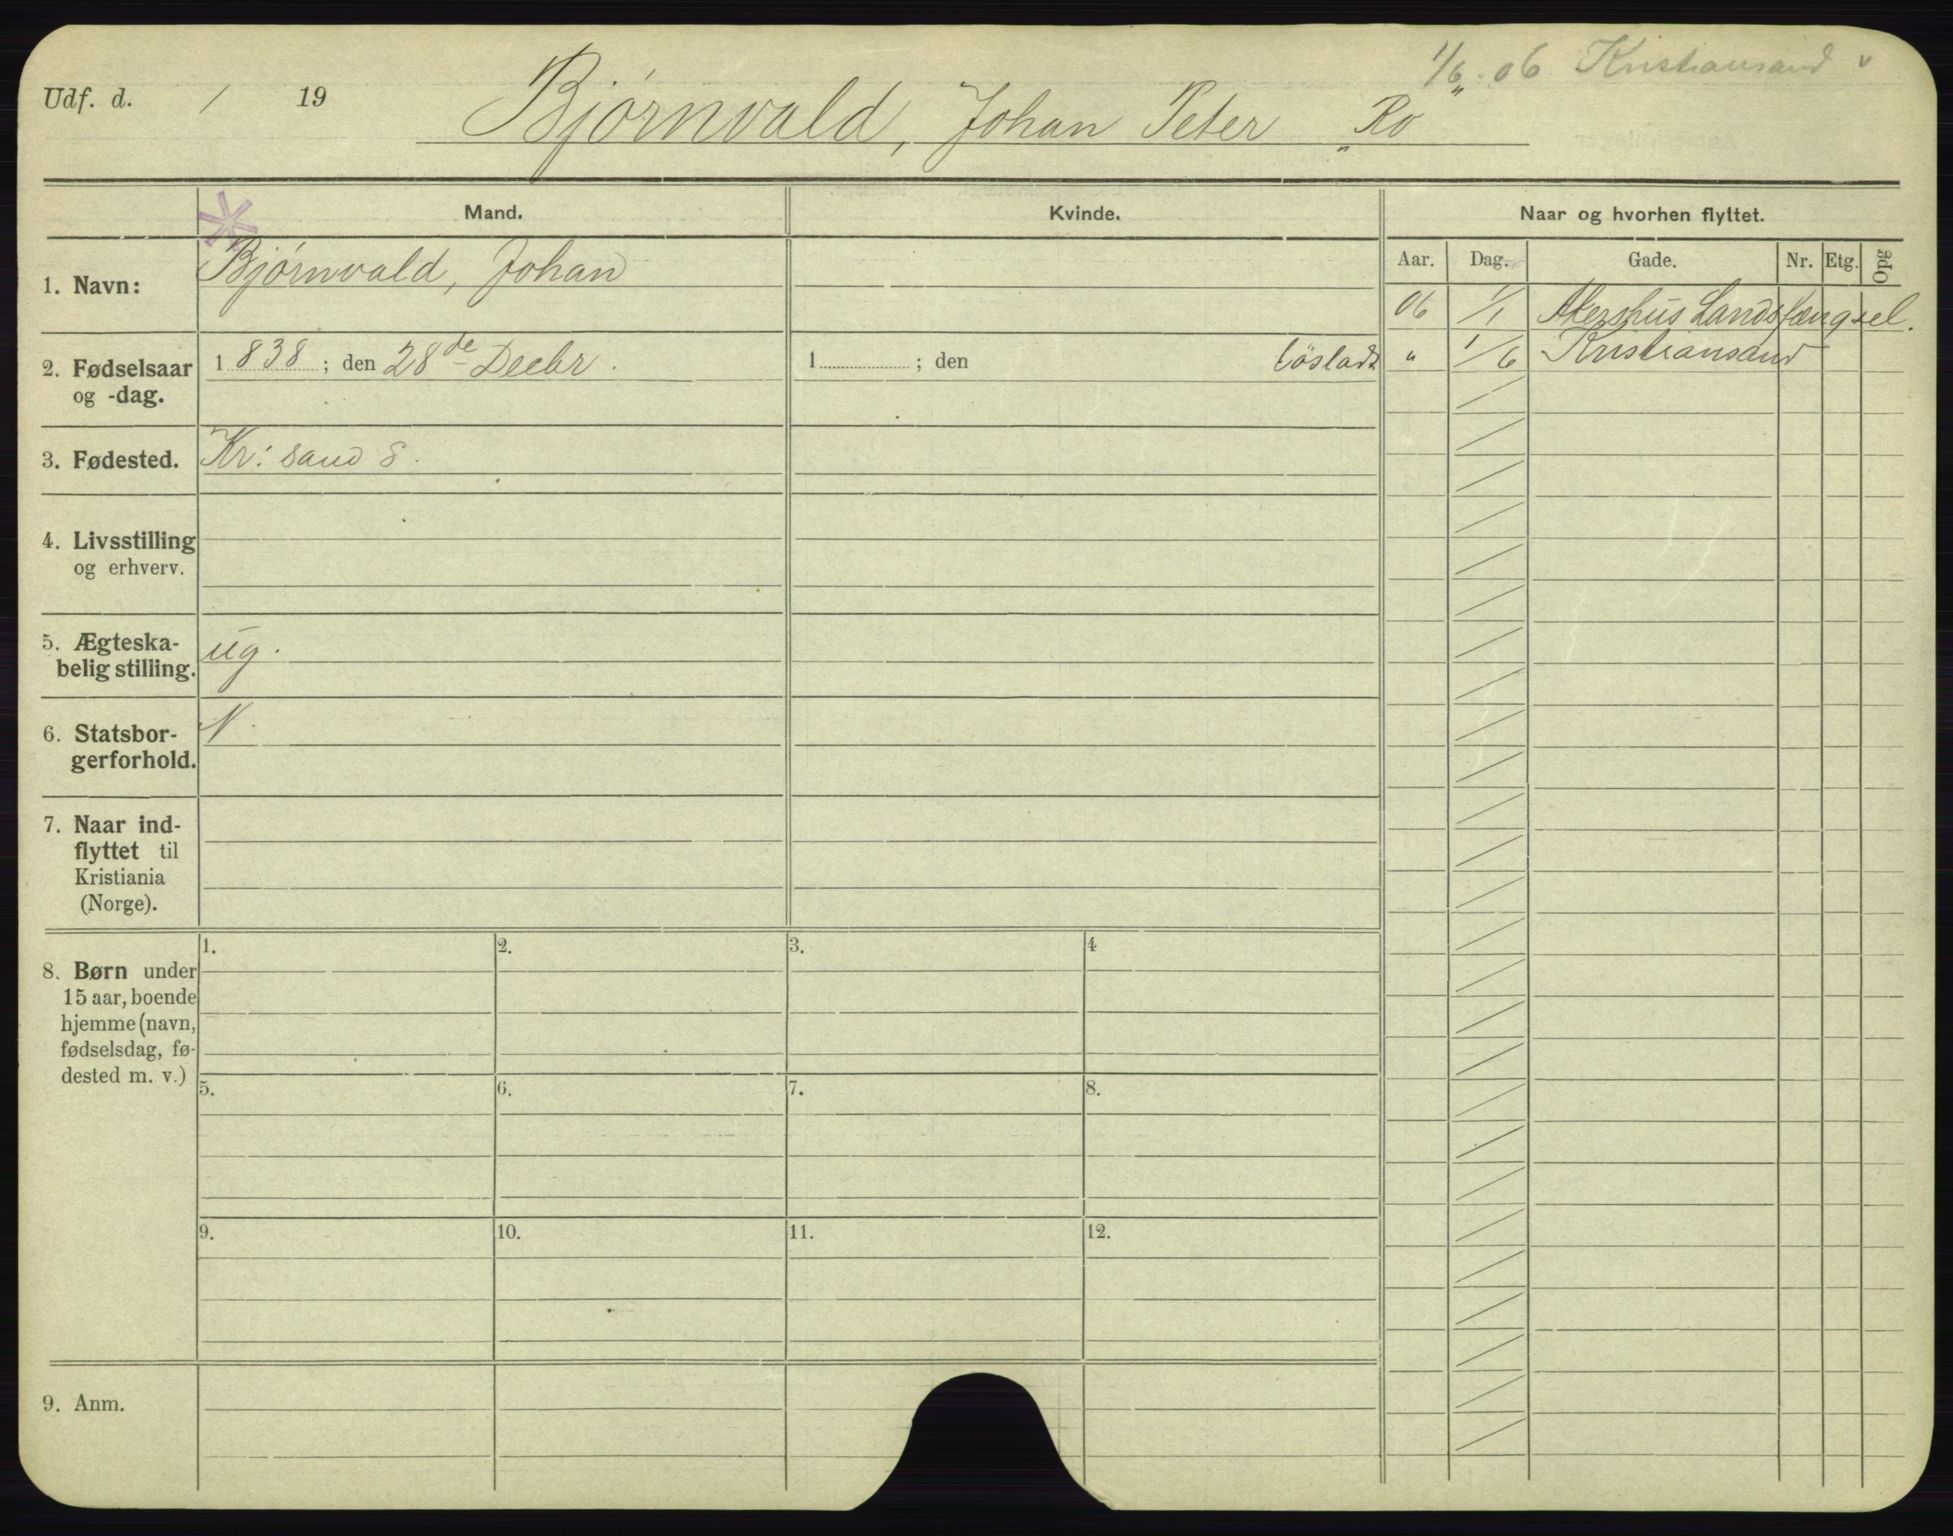 1/6 06 Kristiansand v
Udf. d. / 19
Bjørnvald, Johan Peter „Ro
Mand. Kvinde. Naar og hvorhen flyttet.
Aar. Dag. Gade. Nr. Etg. Opg
1. Navn: Bjørnvald, Johan
06 1/1 Akershus Landsfængsel.
2. Fødselsaar 1838; den 28de Decbr. 1 ; den løsladt " 1/6 Kristiansand
og -dag.
3. Fødested. Kr: sand S.
4. Livsstilling
og erhverv.
5. Ægteska-
belig stilling. ug.
6. Statsbor- N.
gerforhold.
7. Naar ind-
flyttet til
Kristiania
(Norge).
1. 2. 3. 4
8. Børn under
15 aar, boende
hjemme (navn,
fødselsdag, fø-
dested m. v.)
5. 6. 7. 8.
9. 10. 11. 12.
9. Anm.